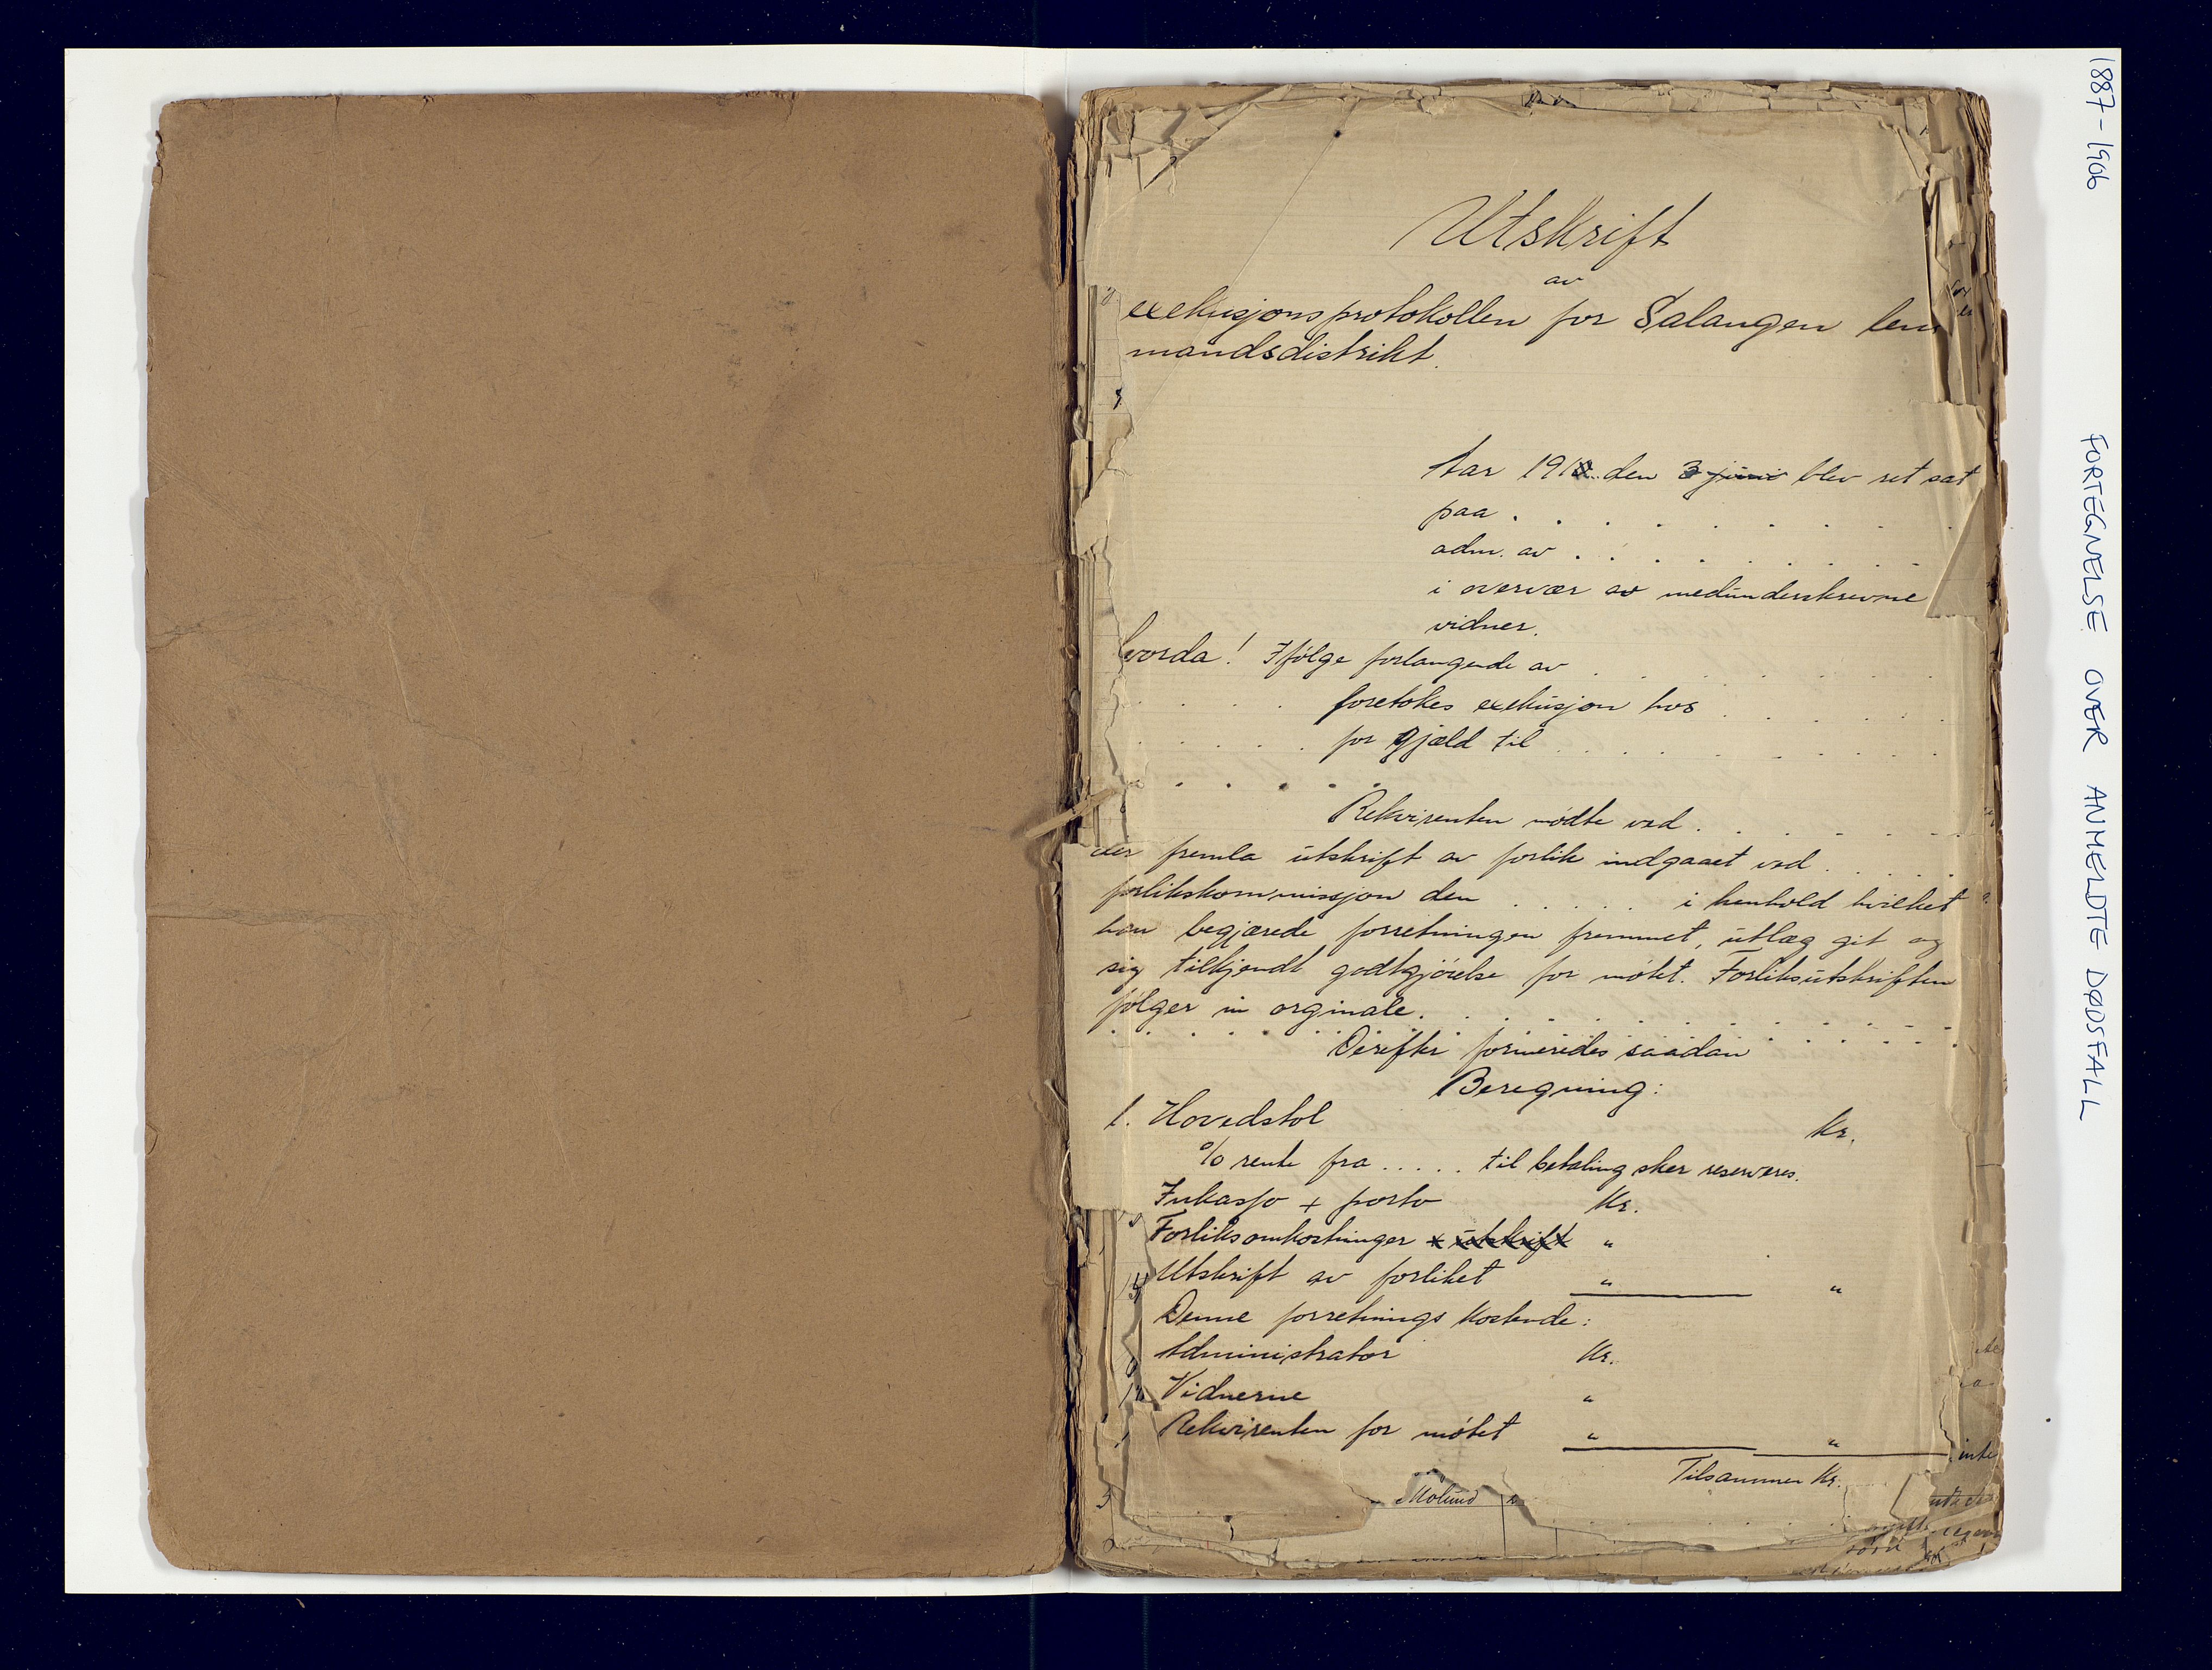 Utskrift
av
exekusjonsprotokollen for Salangen len
mandsdistrikt.
Aar 191 den 3 juni blev ret sat
paa . . . . . . . .
adm. av . . . . . . . .
i overvær av medunderskrevne
vidner.
hvorda! Ifølge forlangende av . . . . . . .
. . . . foretokes exekusjon hos . . . . .
. . . . . for gjæld til . . . . . . .
. . . . .
Rekvirenten mødte ved . . . . . .
der fremla utskrift av forlik indgaaet ved . . . .
forlikskommissjon den . . . . . i henhold hvilket
han begjærede forretningen fremmet, utlæg git og
sig tilkjendt godtgjörelse for mötet. Forliksutskriften
følger in orginale. . . . . . . . . . .
Derefter formeredes saadan
Beregning:
1. Hovedstol Kr.
% rente fra ..... til betaling sker reserveres.
Inkasso + porto Kr.
Forliksomkostninger + utskrift "
Utskrift av forliket " "
Denne forretnings kostende:
Administrator Kr.
Vidnerne "
Rekvirenten for mötet " "
Tilsammen Kr.
Molund
1887-1906
FORTEGNELSE OVER ANMELDTE DØDSFALL